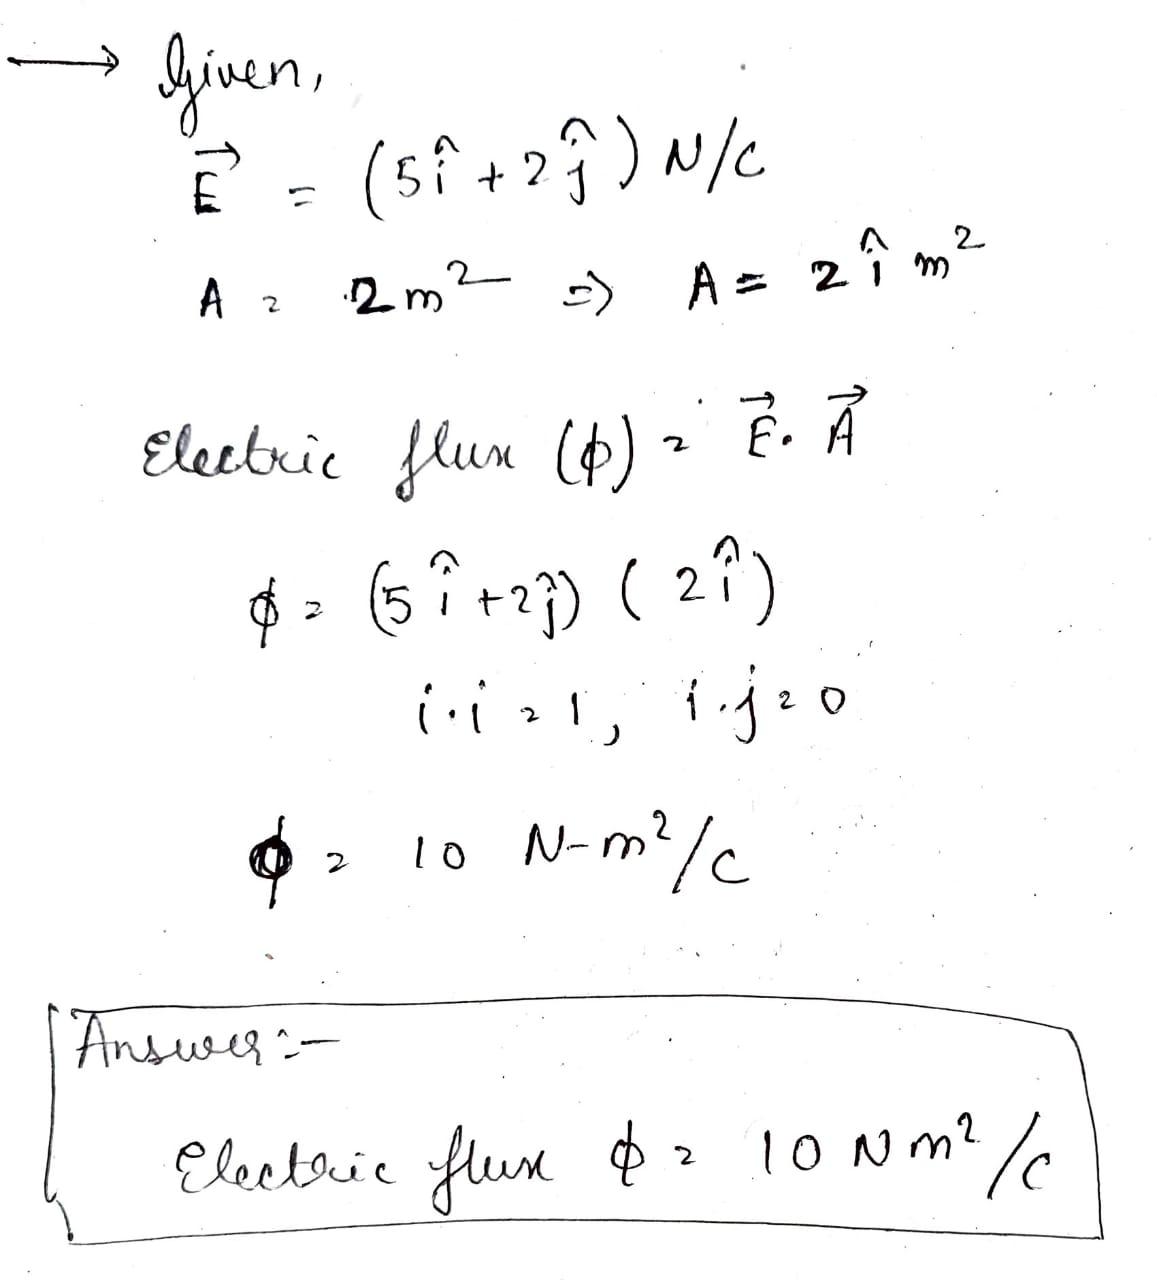 → Given,
E⃗ = (5î + 2ĵ) N/C
A = 2m² ⇒ A = 2î m²
Electric flux (ϕ) = E⃗. A⃗
ϕ = (5î + 2ĵ) (2î)
i.i = 1, i.j = 0
ϕ = 10 N-m²/C
Answer:-
Electric flux ϕ = 10 Nm²/C